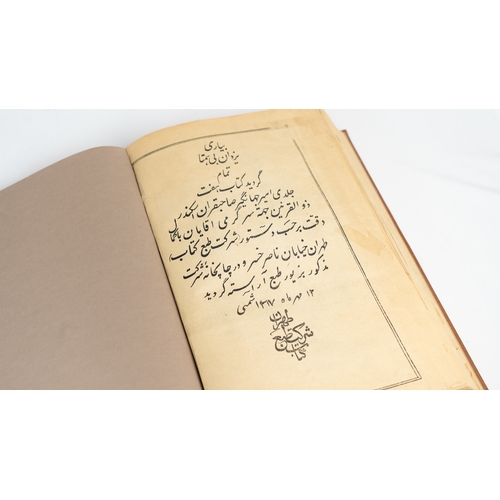 بیاری
یزدان بی همتا
تمام
گردید کتاب هفت
جلدی امیر جهانگیر صاحبقران اسکندر
ذوالقرنین جهة سرگرمی آقایان با کمال
دقت بر حسب دستور شرکت طبع کتاب،
طهران خیابان ناصر خسرو در چاپخانه شرکت
مذکور بزیور طبع آراسته گردید
۱۲ مهر ماه ۱۳۱۷ شمسی
طهران
شرکت طبع
کتاب